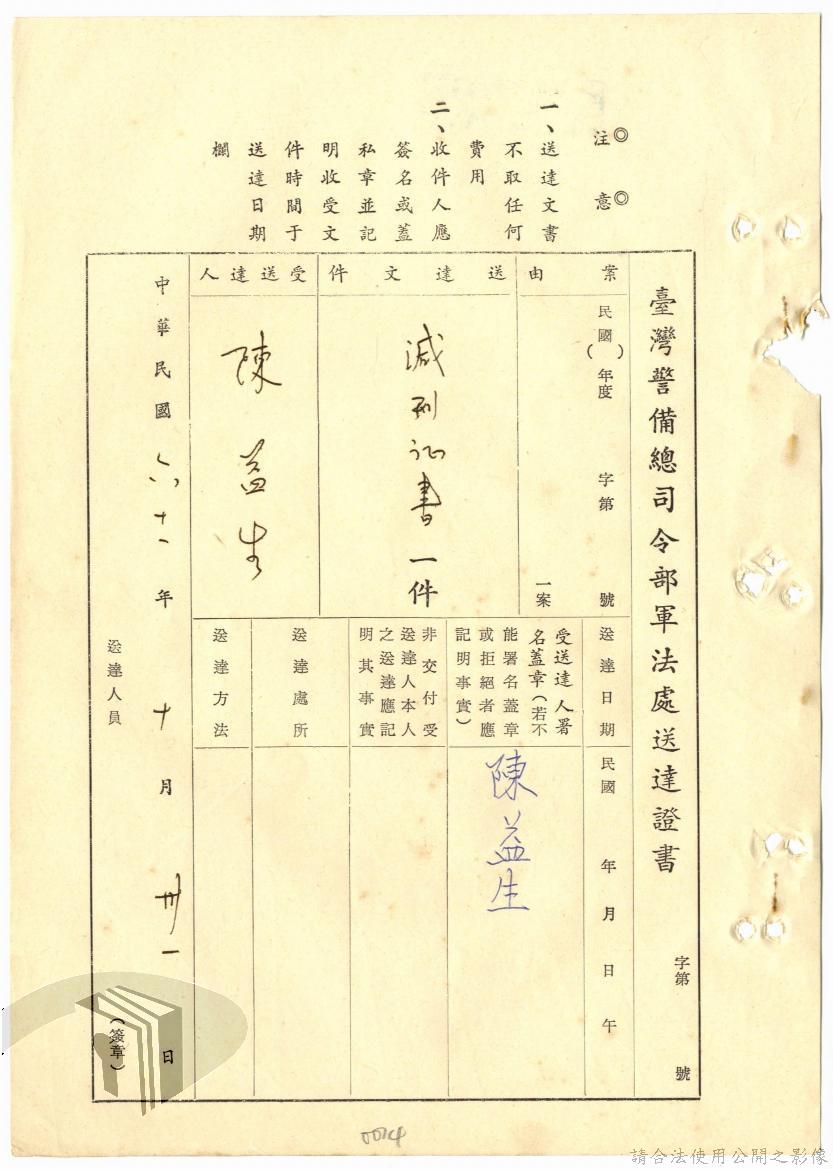 ◎注意◎
一、送達文書
不取任何
費用
二、收件人應
簽名或蓋
私章並記
明收受文
件時間于
送達日期
欄
臺灣警備總司令部軍法處送達證書
字第 號
案由
民國( )年度 字第 號
一案
送達文件
減刑证書一件
受送達人
陳益生
送達日期
民國 年 月 日 午
受送達人署
名蓋章(若不
能署名蓋章
或拒絕者應
記明事實)
陳益生
非交付受
送達人本人
之送達應記
明其事實
送達處所
送達方法
中華民國六十 年 十 月 卅一 日
送達人員 (簽章)
0014
請合法使用公開之影像